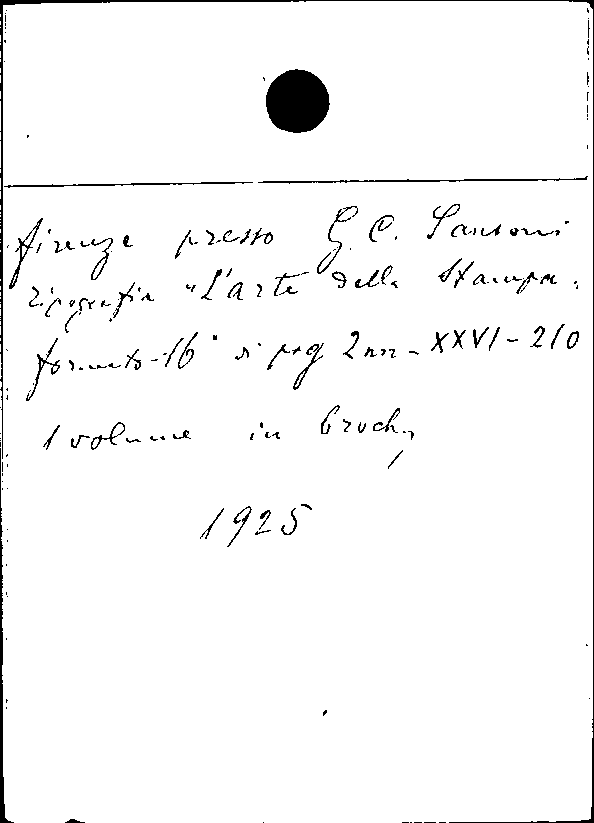 firenze presso G. C. Sansoni
tipografia "L'arte della Stampa.
formato-16° di pag 2nn-XXVI-210
1 volume in broch,
1925